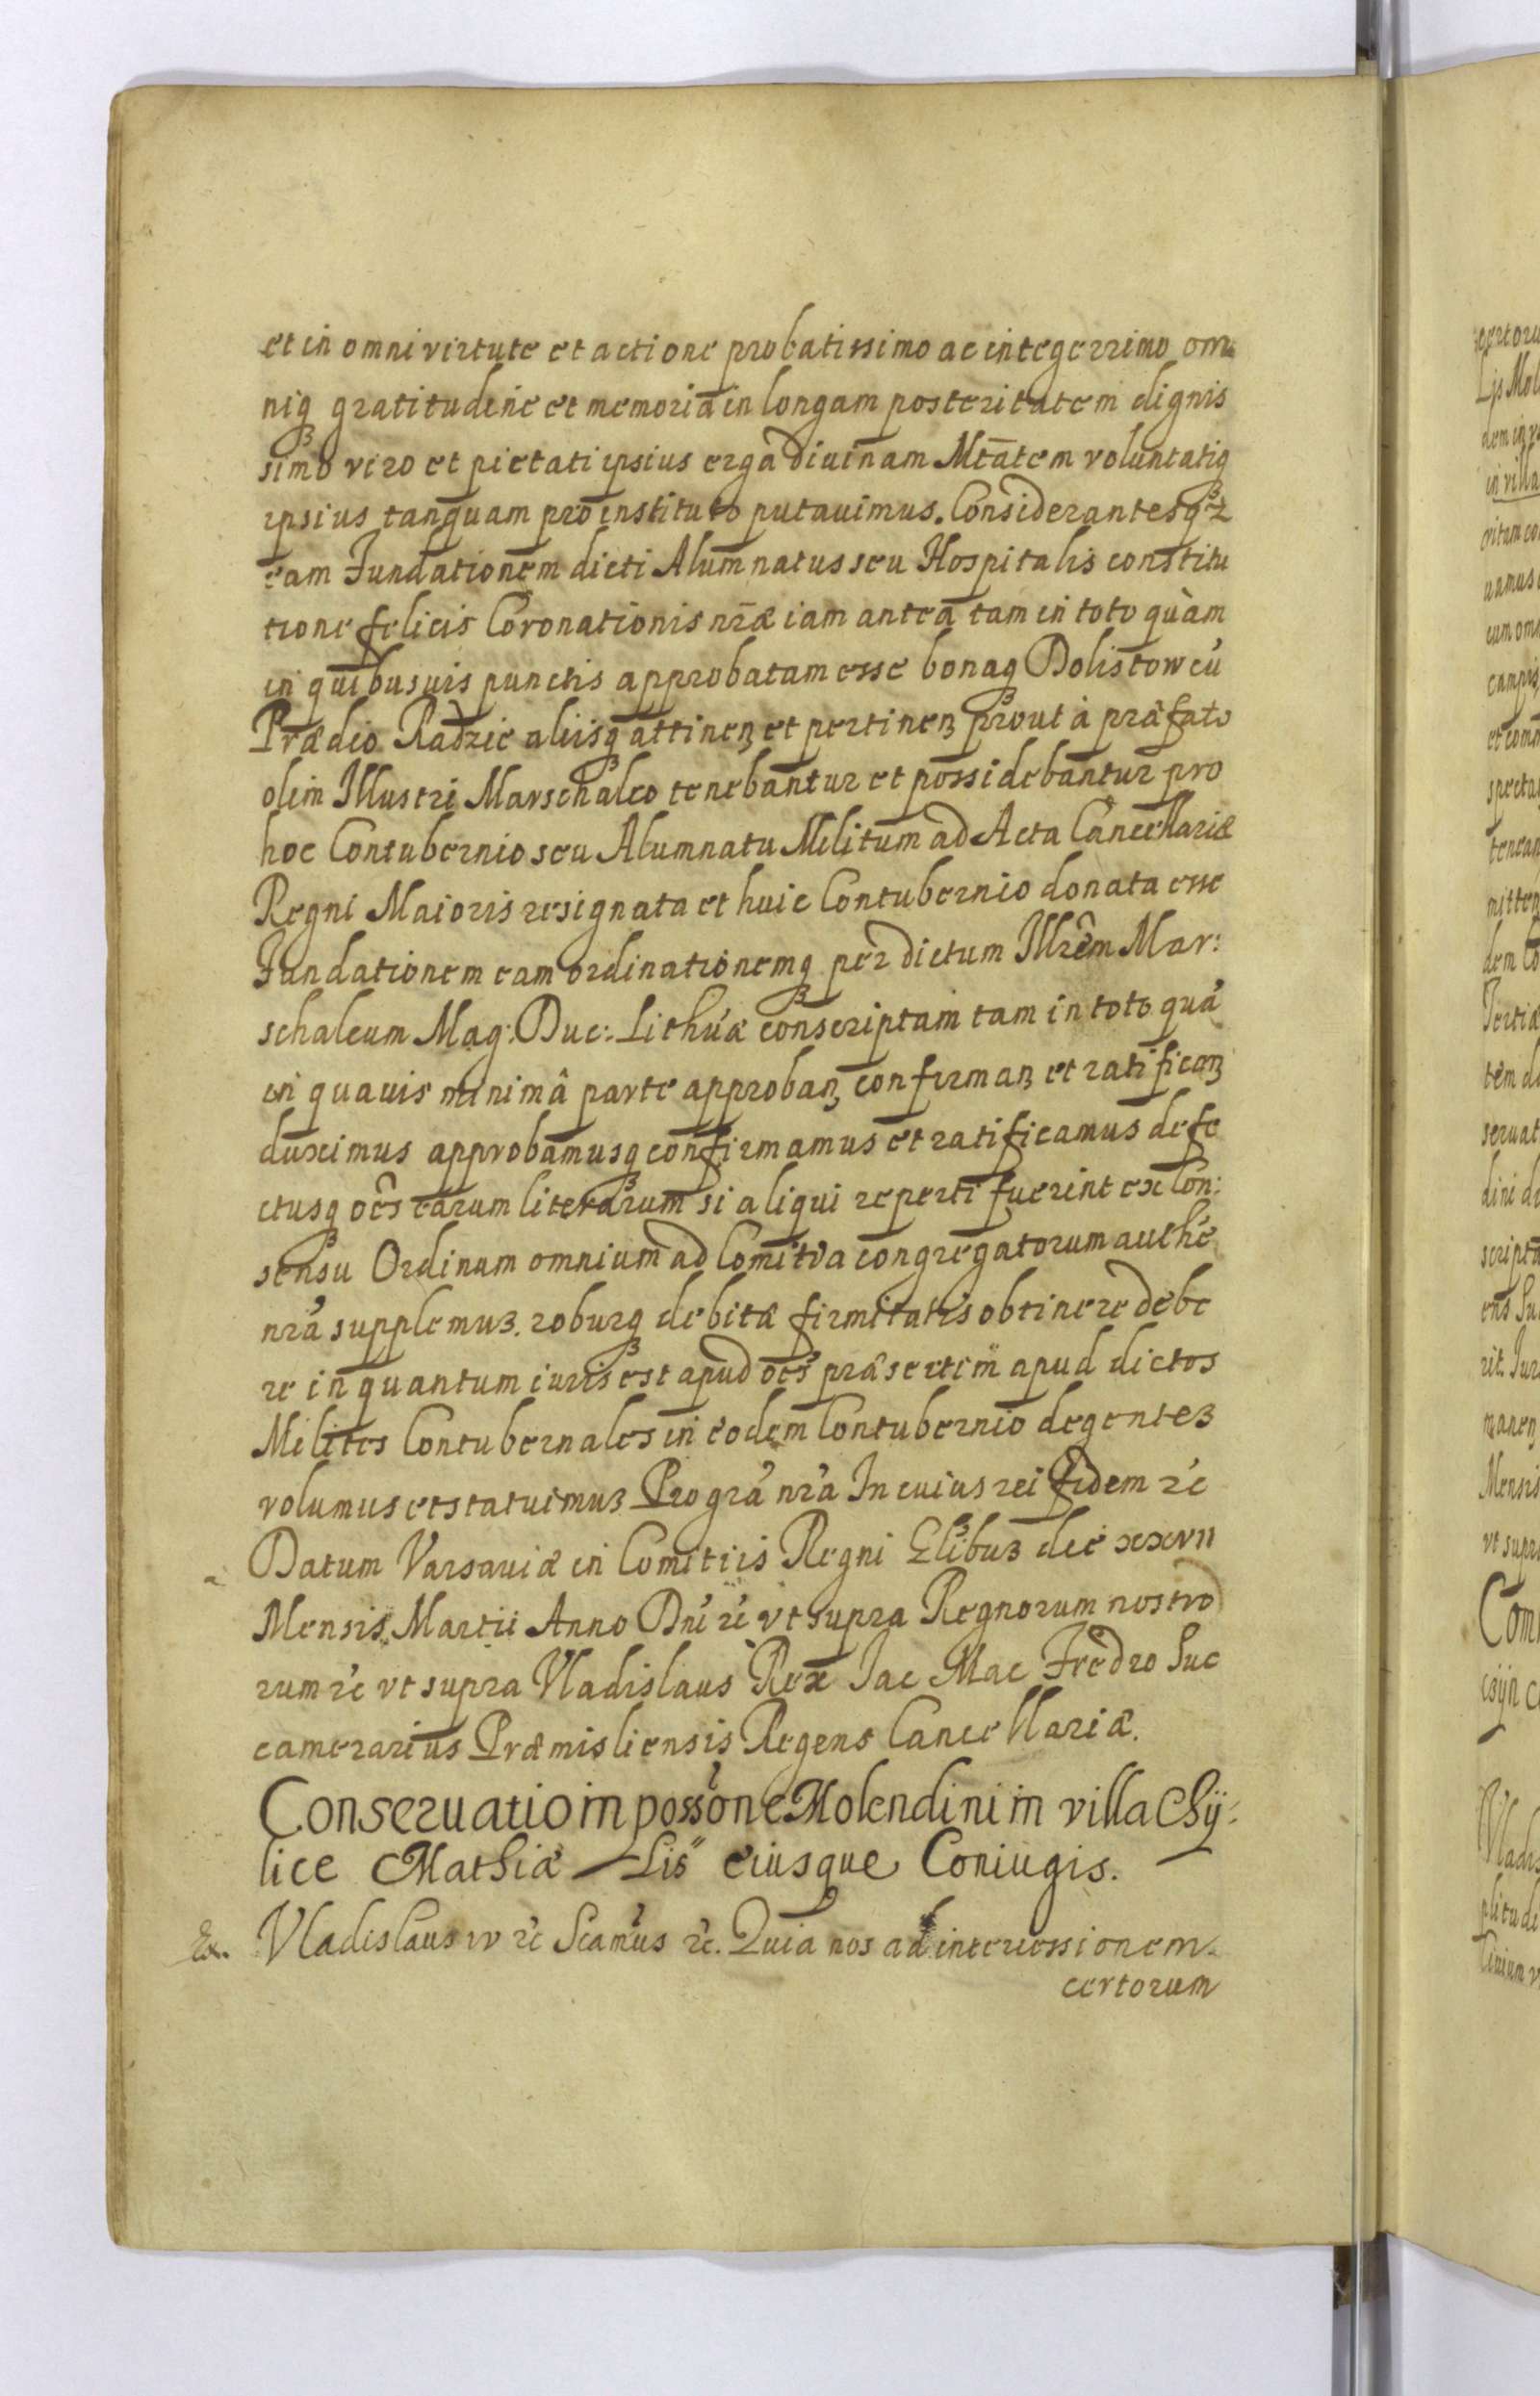 et in omni virtute et actione probatissimo ac integerrimo om
niqꝫ gratitudine et memoria in longam posteritatem dignis
simo viro et pietati ipsius erga Diuinam Mtātem voluntatiqꝫ
ipsius tanquam pro instituto putauimus. Considerantesqꝫ
eam Fundationem dicti Alumnatus seu Hospitalis constitu
tione felicis Coronationis nr̃æ iam antea tam in toto quàm
in quibusuis punctis approbatam esse bonaqꝫ Dolistow cū
Prædio Radzie aliisqꝫ attinenꝫ et pertinenꝫ prout à præfato
olim Illustri Marschalco tenebantur et possidebantur pro
hoc Contubernio seu Alumnatu Militum ad Acta Cancellariæ
Regni Maioris resignata et huic Contubernio donata esse
Fundationem eam ordinationemqꝫ per dictum Illrēm Mar:
schalcum Mag: Duc: Lithūæ conscriptam tam in toto quā
in quauis minimâ parte approbanꝫ confirmanꝫ et ratificanꝫ
duximus approbamusqꝫ confirmamus et ratificamus defe
ctusqꝫ oēs earum literarum si aliqui reperti fuerint ex Con:
sensu Ordinum omnium ad Comitia congregatorum authē
nrā supplemuꝫ. roburqꝫ debitæ firmitatis obtinere debe
re in quantum iuris est apud oēs præsertim apud dictos
Milites Contubernales in eodem Contubernio degentes
volumus et statuimuꝫ Pro grā nrā In cuius rei fidem ꝛc
Datum Varsauiæ in Comitiis Regni Glibuꝫ die xxvii
Mensis Martii Anno Dni ꝛc vt supra Regnorum nostro
rum ꝛc vt supra Vladislaus Rex Jac Mac Fredro Suc
camerarius Præmisliensis Regens Cancellariæ.
Conseruatio in possōne Molendini in villa Chÿ:
lice Mathiæ Lis eiusque Coniugis.
Vladislaus iv ꝛc Scamūs ꝛc. Quia nos ad intercessionem
certorum